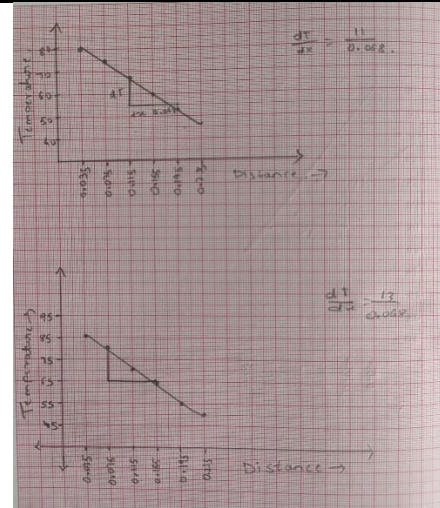 dT/dx = 11/0.068.
Temperature
80
70
60
50
40
dT
dx
0.035
0.075
0.115
0.155
0.195
0.235
Distance →
dT/dx = 13/0.068.
Temperature →
95
85
75
65
55
45
0.035
0.075
0.115
0.155
0.195
0.235
Distance →